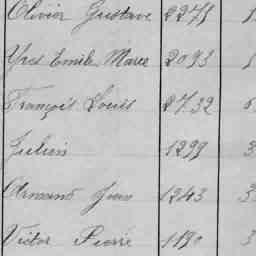 Olivier Gustave 2275 1
Yves Emile Marie 2093 1
François Louis 2732
Julien 1299 3
Armand Jean 1243 3
Victor Pierre 1190 3